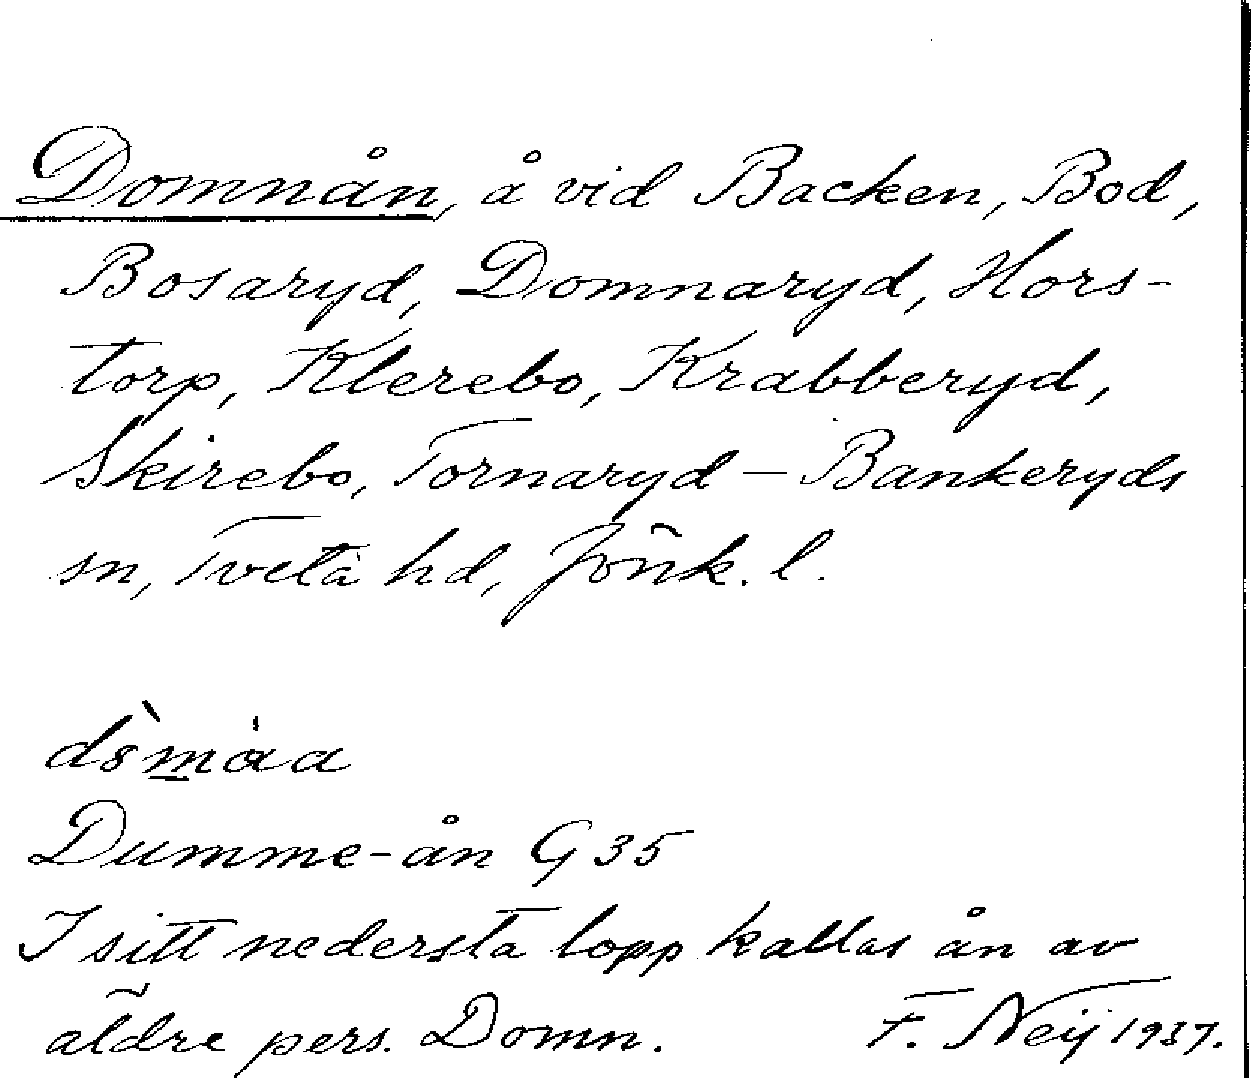 Domnån, å vid Backen, Bod,
Bosaryd, Domnaryd, Hors-
torp, Klerebo, Krabberyd,
Skirebo, Tornaryd – Bankeryds
sn, Tveta hd, Jönk. l.
Dumme-ån G 35
I sitt nedersta lopp kallas ån av
äldre pers. Domn. F. Neij 1937.